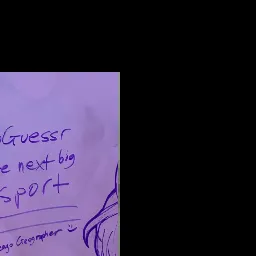 oGuessr
e next big
sport
ago Geographer :)